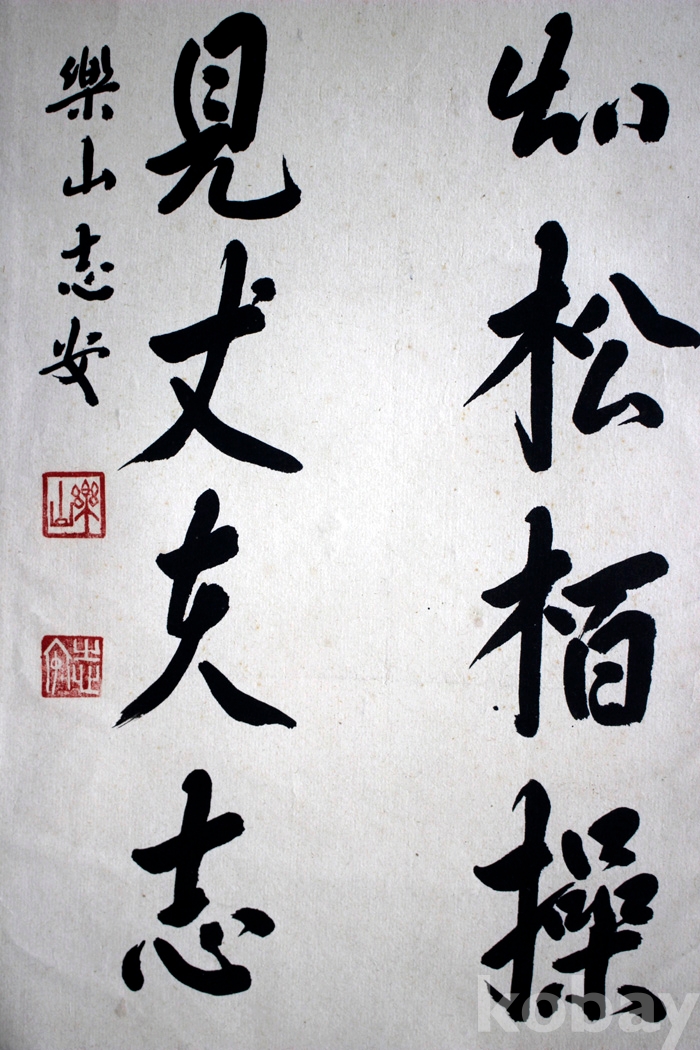 知松柏操
見丈夫志
樂山志安
樂山
志安
kobay